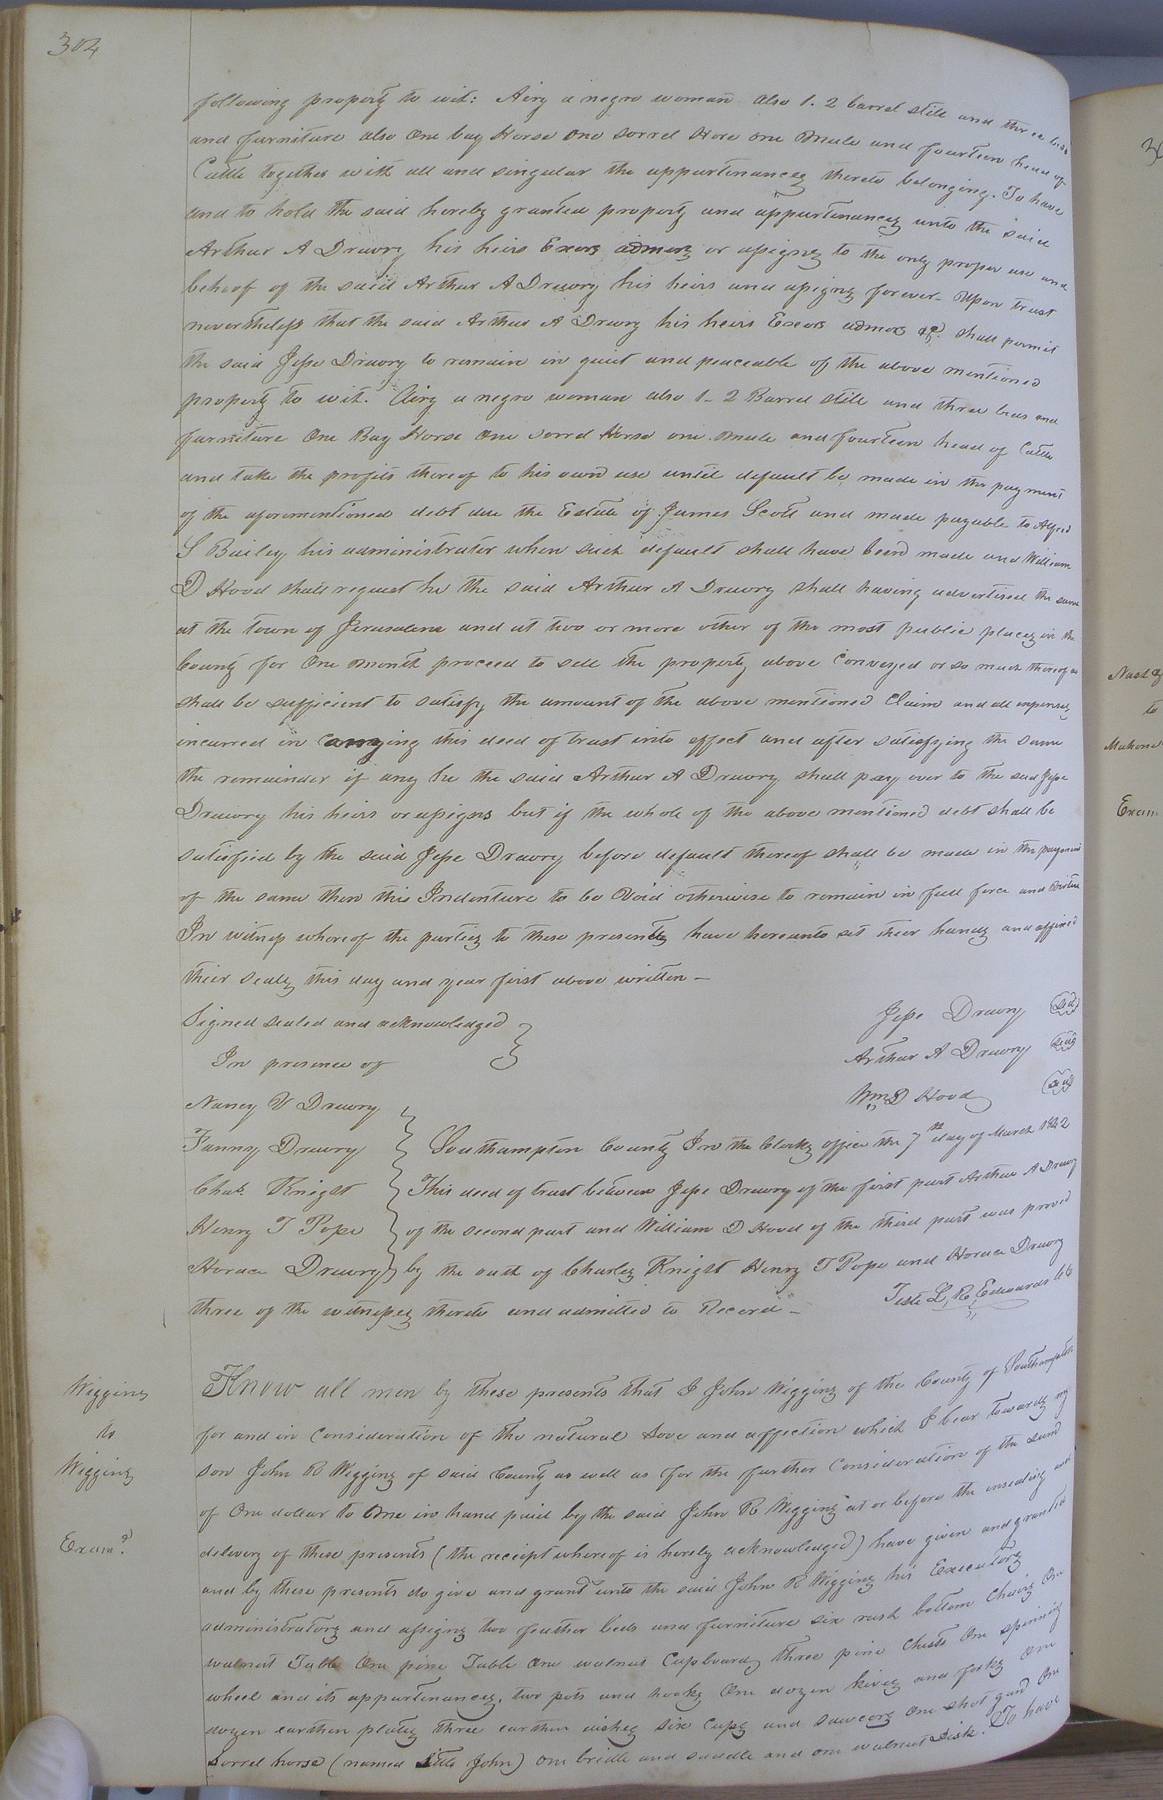 304
following property to wit: Airy a negro woman also 1. 2 barrel still and three beds
and furniture also One bay Horse one sorrel Hore one Mule and fourteen head of
Cattle together with all and singular the appurtenances thereto belonging. To have
and to hold the said hereby granted property and appurtenances unto the said
Arthur A Drewry his heirs Exors admors or assigns to the only proper use and
behoof of the said Arthur A Drewry his heirs and assigns forever. Upon trust
nevertheless that the said Arthur A Drewry his heirs Exors admors &c. shall permit
the said Jesse Drewry to remain in quiet and peaceable of the above mentioned
property to wit. Airy a negro woman also 1- 2 Barrel still and three beds and
furniture One Bay Horse One sorrel Horse one Mule and fourteen head of Cattle
and take the profits thereof to his own use until default be made in the payment
of the aforementioned debt due the Estate of James Scott and made payable to Alfred
S Bailey his administrator when such default shall have been made and William
D Hood shall request he the said Arthur A Drewry shall having advertised the same
at the town of Jerusalem and at two or more other of the most public places in the
County for One Month proceed to sell the property above Conveyed or so much thereof as
shall be sufficient to satisfy the amount of the above mentioned Claim and all expenses
incurred in Carrying this deed of trust into effect and after satisfying the same
the remainder if any he the said Arthur A Drewry shall pay over to the said Jesse
Drewry his heirs or assigns but if the whole of the above mentioned debt shall be
satisfied by the said Jesse Drewry before default thereof shall be made in the payment
of the same then this Indenture to be Void otherwise to remain in full force and virtue
In witness whereof the parties to these presents have hereunto set their hands and affixed
their seals this day and year first above written —
Signed sealed and acknowledged
In presence of
Jesse Drewry seal
Arthur A Drewry seal
Wm D Hood seal
Nancy V Drewry
Fanny Drewry
Chas. Knight
Henry T Pope
Horace Drewry
Southampton County In the Clerks office the 7th day of March 1842
This deed of trust between Jesse Drewry of the first part Arthur A Drewry
of the second part and William D Hood of the third part was proved
by the oath of Charles Knight Henry T Pope and Horace Drewry
three of the witnesses thereto and admitted to Record —
Teste L. R. Edwards CC
Wiggins
to
Wiggins
Examd
Know all men by these presents that I John Wiggins of the County of Southampton
for and in Consideration of the natural Love and affection which I bear towards my
son John R Wiggins of said County as well as for the further Consideration of the sum
of One dollar to me in hand paid by the said John R Wiggins at or before the ensealing and
delivery of these presents (the receipt whereof is hereby acknowledged) have given and granted
and by these presents do give and grant unto the said John R Wiggins his Executors
administrators and assigns two feather beds and furniture six rush bottom Chairs One
walnut Table One pine Table one walnut Cupboard, three pine Chests One spinning
wheel and its appurtenances, two pots and hooks One dozen knives and forks One
dozen earthen plates three earthen dishes six Cups and saucers One shot gun One
sorrel horse (named little John) one bridle and saddle and one walnut Desk. To have
Nash
to
Mahone
Exam